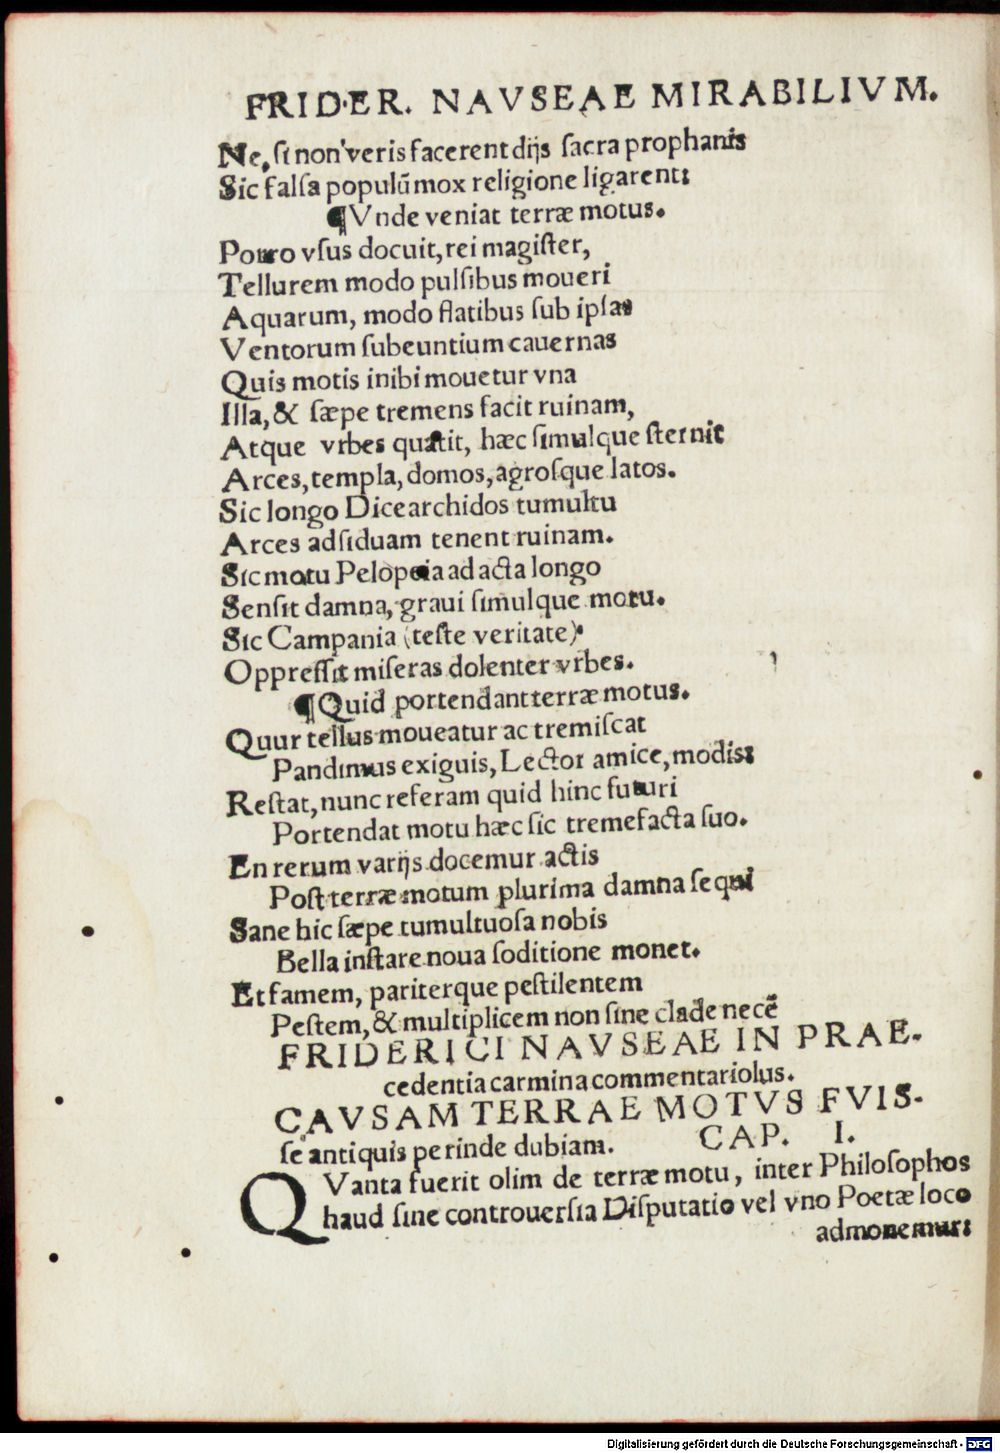 FRIDER. NAVSEAE MIRABILIVM.
Ne, si non veris facerent dijs sacra prophanis
Sic falsa populū mox religione ligarent:
¶Vnde veniat terræ motus.
Porro vsus docuit, rei magister,
Tellurem modo pulsibus moueri
Aquarum, modo flatibus sub ipsas
Ventorum subeuntium cauernas
Quis motis inibi mouetur vna
Illa, & sæpe tremens facit ruinam,
Atque vrbes quatit, hæc simulque sternit
Arces, templa, domos, agrosque latos.
Sic longo Dicearchidos tumultu
Arces adsiduam tenent ruinam.
Sic motu Pelopeia ad acta longo
Sensit damna, graui simulque motu.
Sic Campania (teste veritate)
Oppressit miseras dolenter vrbes.
¶Quid portendant terræ motus.
Quur tellus moueatur ac tremiscat
Pandimus exiguis, Lector amice, modis:
Restat, nunc referam quid hinc futuri
Portendat motu hæc sic tremefacta suo.
En rerum varijs docemur actis
Post terræ motum plurima damna sequi
Sane hic sæpe tumultuosa nobis
Bella instare noua soditione monet.
Et famem, pariterque pestilentem
Pestem, & multiplicem non sine clade necē
FRIDERICI NAVSEAE IN PRAE-
cedentia carmina commentariolus.
CAVSAM TERRAE MOTVS FVIS-
se antiquis perinde dubiam. CAP. I.
QVanta fuerit olim de terræ motu, inter Philosophos
haud sine controuersia Disputatio vel vno Poetæ loco
admonemur:
Digitalisierung gefördert durch die Deutsche Forschungsgemeinschaft - DFG